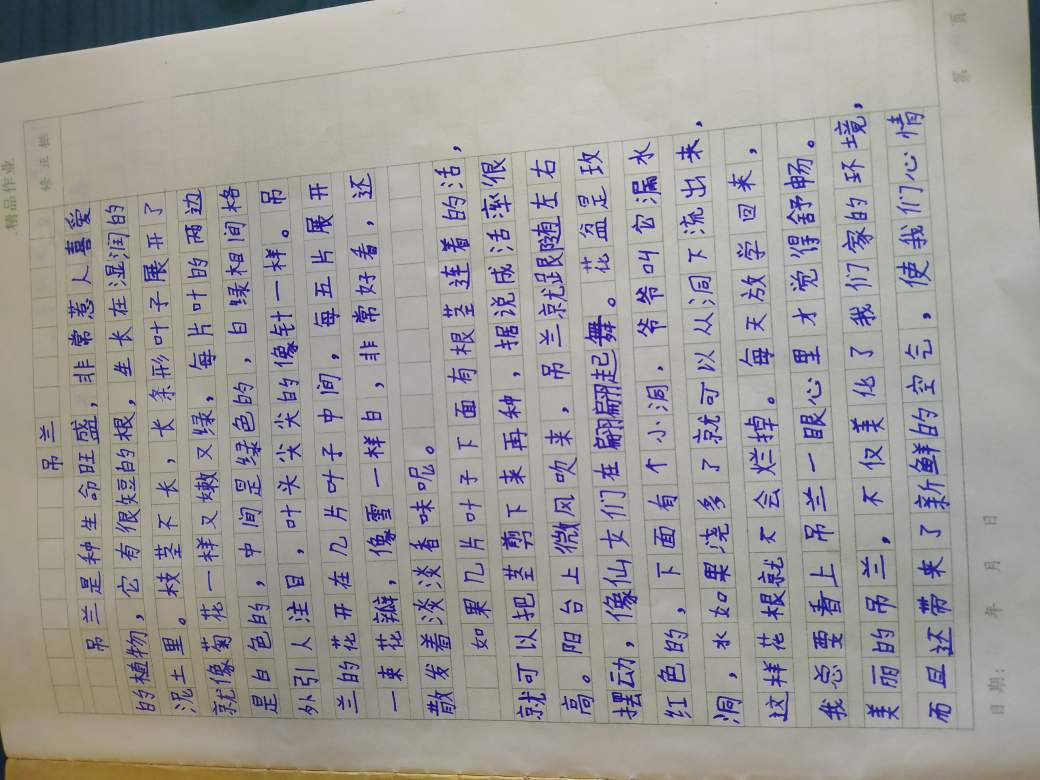 精品作业
修正栏
吊兰
吊兰是种生命旺盛，非常惹人喜爱
的植物，它有很短的根，生长在湿润的
泥土里。枝茎不长，长条形叶子展开了
就像菊花一样又嫩又绿，每片叶的两边
是白色的，中间是绿色的，白绿相间格
外引人注目，叶头尖尖的像针一样。吊
兰的花开在几片叶子中间，每五片展开
一束花瓣，像雪一样白，非常好看，还
散发着淡淡香味呢。
如果几片叶子下面有根茎连着的活，
就可以把茎剪下来再种，据说成活率很
高。阳台上微风吹来，吊兰就跟随左右
摆动，像仙女们在翩翩起舞。花盆是玫
红色的，下面有个小洞，爷爷叫它漏水
洞，水如果浇多了就可以从洞下流出来，
这样花根就不会烂掉。每天放学回来，
我总要看上吊兰一眼心里才觉得舒畅。
美丽的吊兰，不仅美化了我们家的环境，
而且还带来了新鲜的空气，使我们心情
日期： 年 月 日
第 页